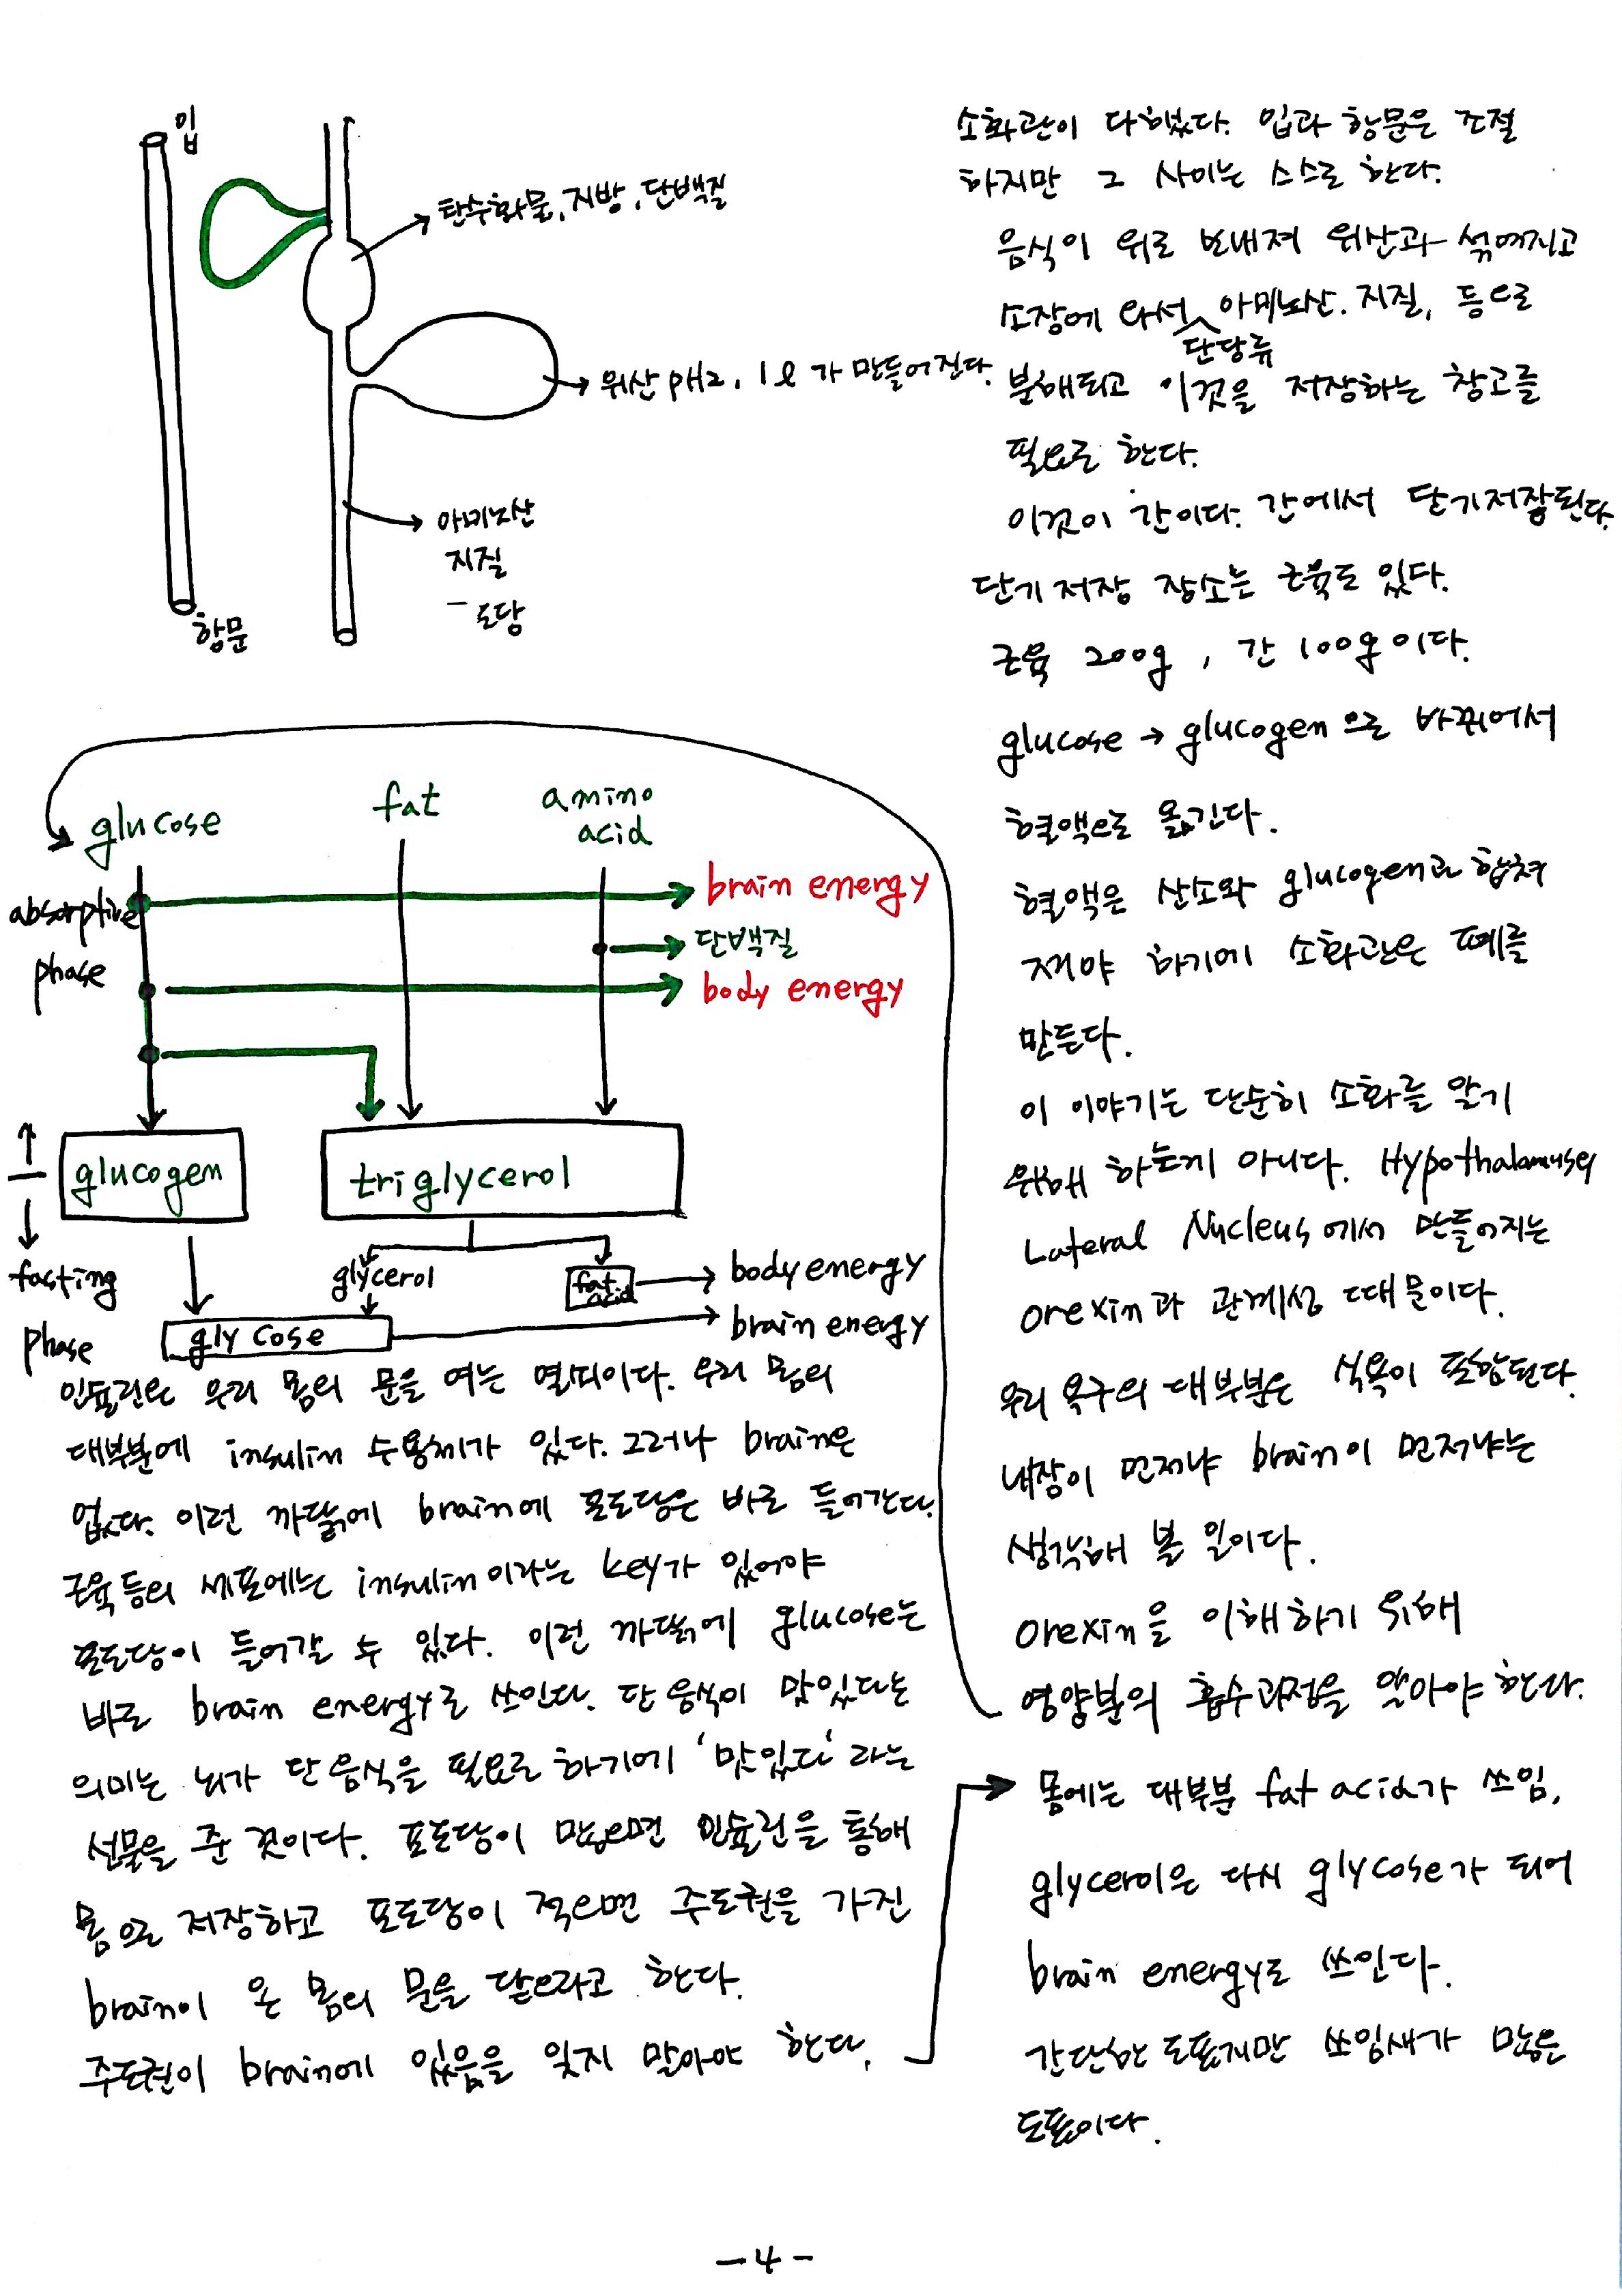 입
탄수화물, 지방, 단백질
위산 pH2, 1ℓ가 만들어진다.
아미노산
지질
도당
항문
소화관이 다했다. 입과 항문은 조절
하지만 그 사이는 스스로 한다.
음식이 위로 보내져 위산과 섞여지고
소장에 와서 단당류 아미노산. 지질, 등으로
분해되고 이것을 저장하는 창고를
필요로 한다.
이것이 간이다. 간에서 단기저장된다.
단기저장 장소는 근육도 있다.
근육 200g, 간 100g이다.
glucose → glucogen으로 바뀌어서
혈액으로 옮긴다.
혈액은 산소와 glucogen과 합쳐
져야 하기에 소화관은 폐를
만든다.
이 이야기는 단순히 소화를 알기
위해 하는게 아니다. Hypothalamus의
Lateral Nucleus에서 만들어지는
orexin과 관계성 때문이다.
우리 욕구의 대부분은 식욕이 포함된다.
내장이 먼저냐 brain이 먼저냐는
생각해 볼 일이다.
orexin을 이해하기 위해
영양분의 흡수과정을 알아야 한다.
glucose
fat
amino
acid
absorptive
phase
brain energy
단백질
body energy
glucogen
triglycerol
fasting
phase
glycerol
fat
acid
body energy
glycose
brain energy
인슐린은 우리 몸의 문을 여는 열쇠이다. 우리 몸의
대부분에 insulin 수용체가 있다. 그러나 brain은
없다. 이런 까닭에 brain에 포도당은 바로 들어간다.
근육등의 세포에는 insulin이라는 key가 있어야
포도당이 들어갈 수 있다. 이런 까닭에 glucose는
바로 brain energy로 쓰인다. 단 음식이 맛있다는
의미는 뇌가 단 음식을 필요로 하기에 '맛있다' 라는
선물을 준 것이다. 포도당이 많으면 인슐린을 통해
몸으로 저장하고 포도당이 적으면 주도권을 가진
brain이 온 몸의 문을 닫으라고 한다.
주도권이 brain에 있음을 잊지 말아야 한다.
몸에는 대부분 fat acid가 쓰임,
glycerol은 다시 glycose가 되어
brain energy로 쓰인다.
간단한 도표지만 쓰임새가 많은
도표이다.
-4-